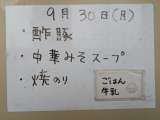 9月30日(月)
・酢豚
・中華みそスープ
・焼のり
ごはん
牛乳